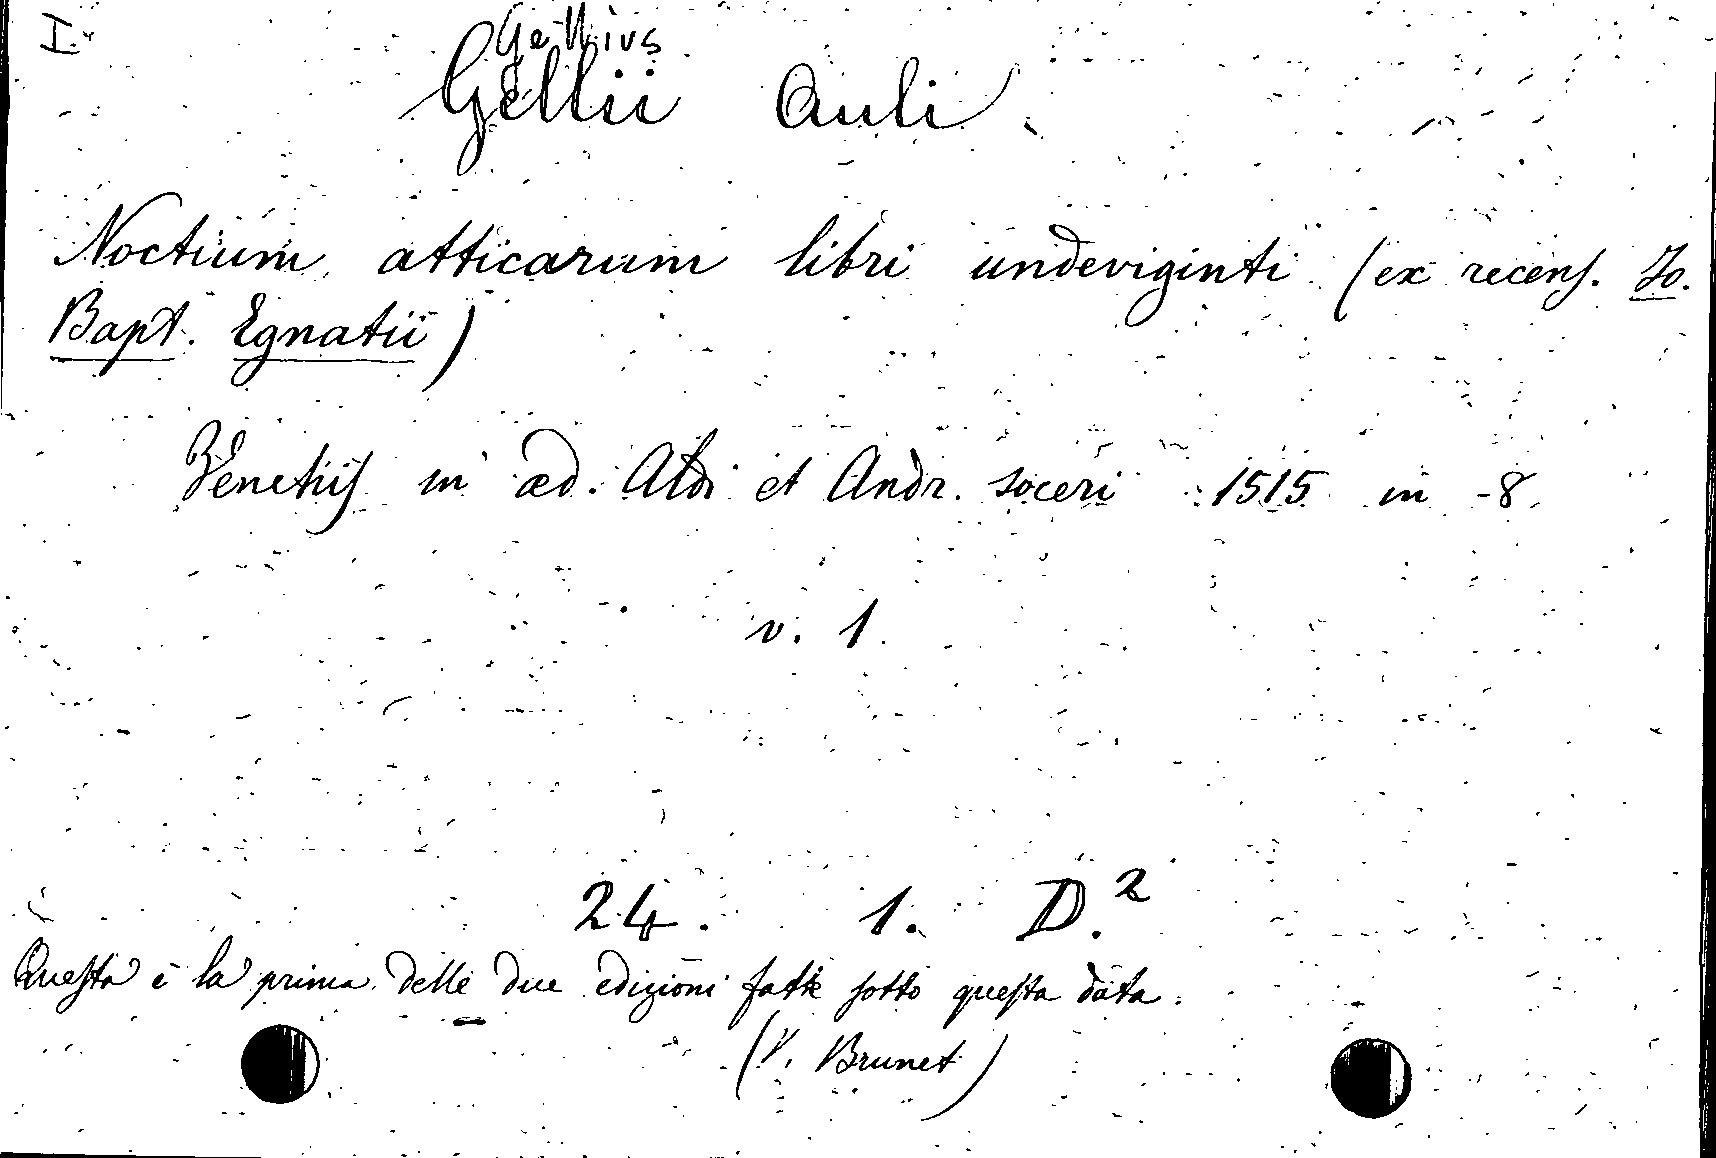 I.
Gellius
Gellii Auli
Noctium atticarum libri undeviginti (ex recens. Jo.
Bapt. Egnatii)
Venetiis in æd. Aldi et Andr. soceri 1515 in -8
v. 1
24. 1. D.²
Questa è la prima delle due edizioni fatte sotto questa data.
(V. Brunet)